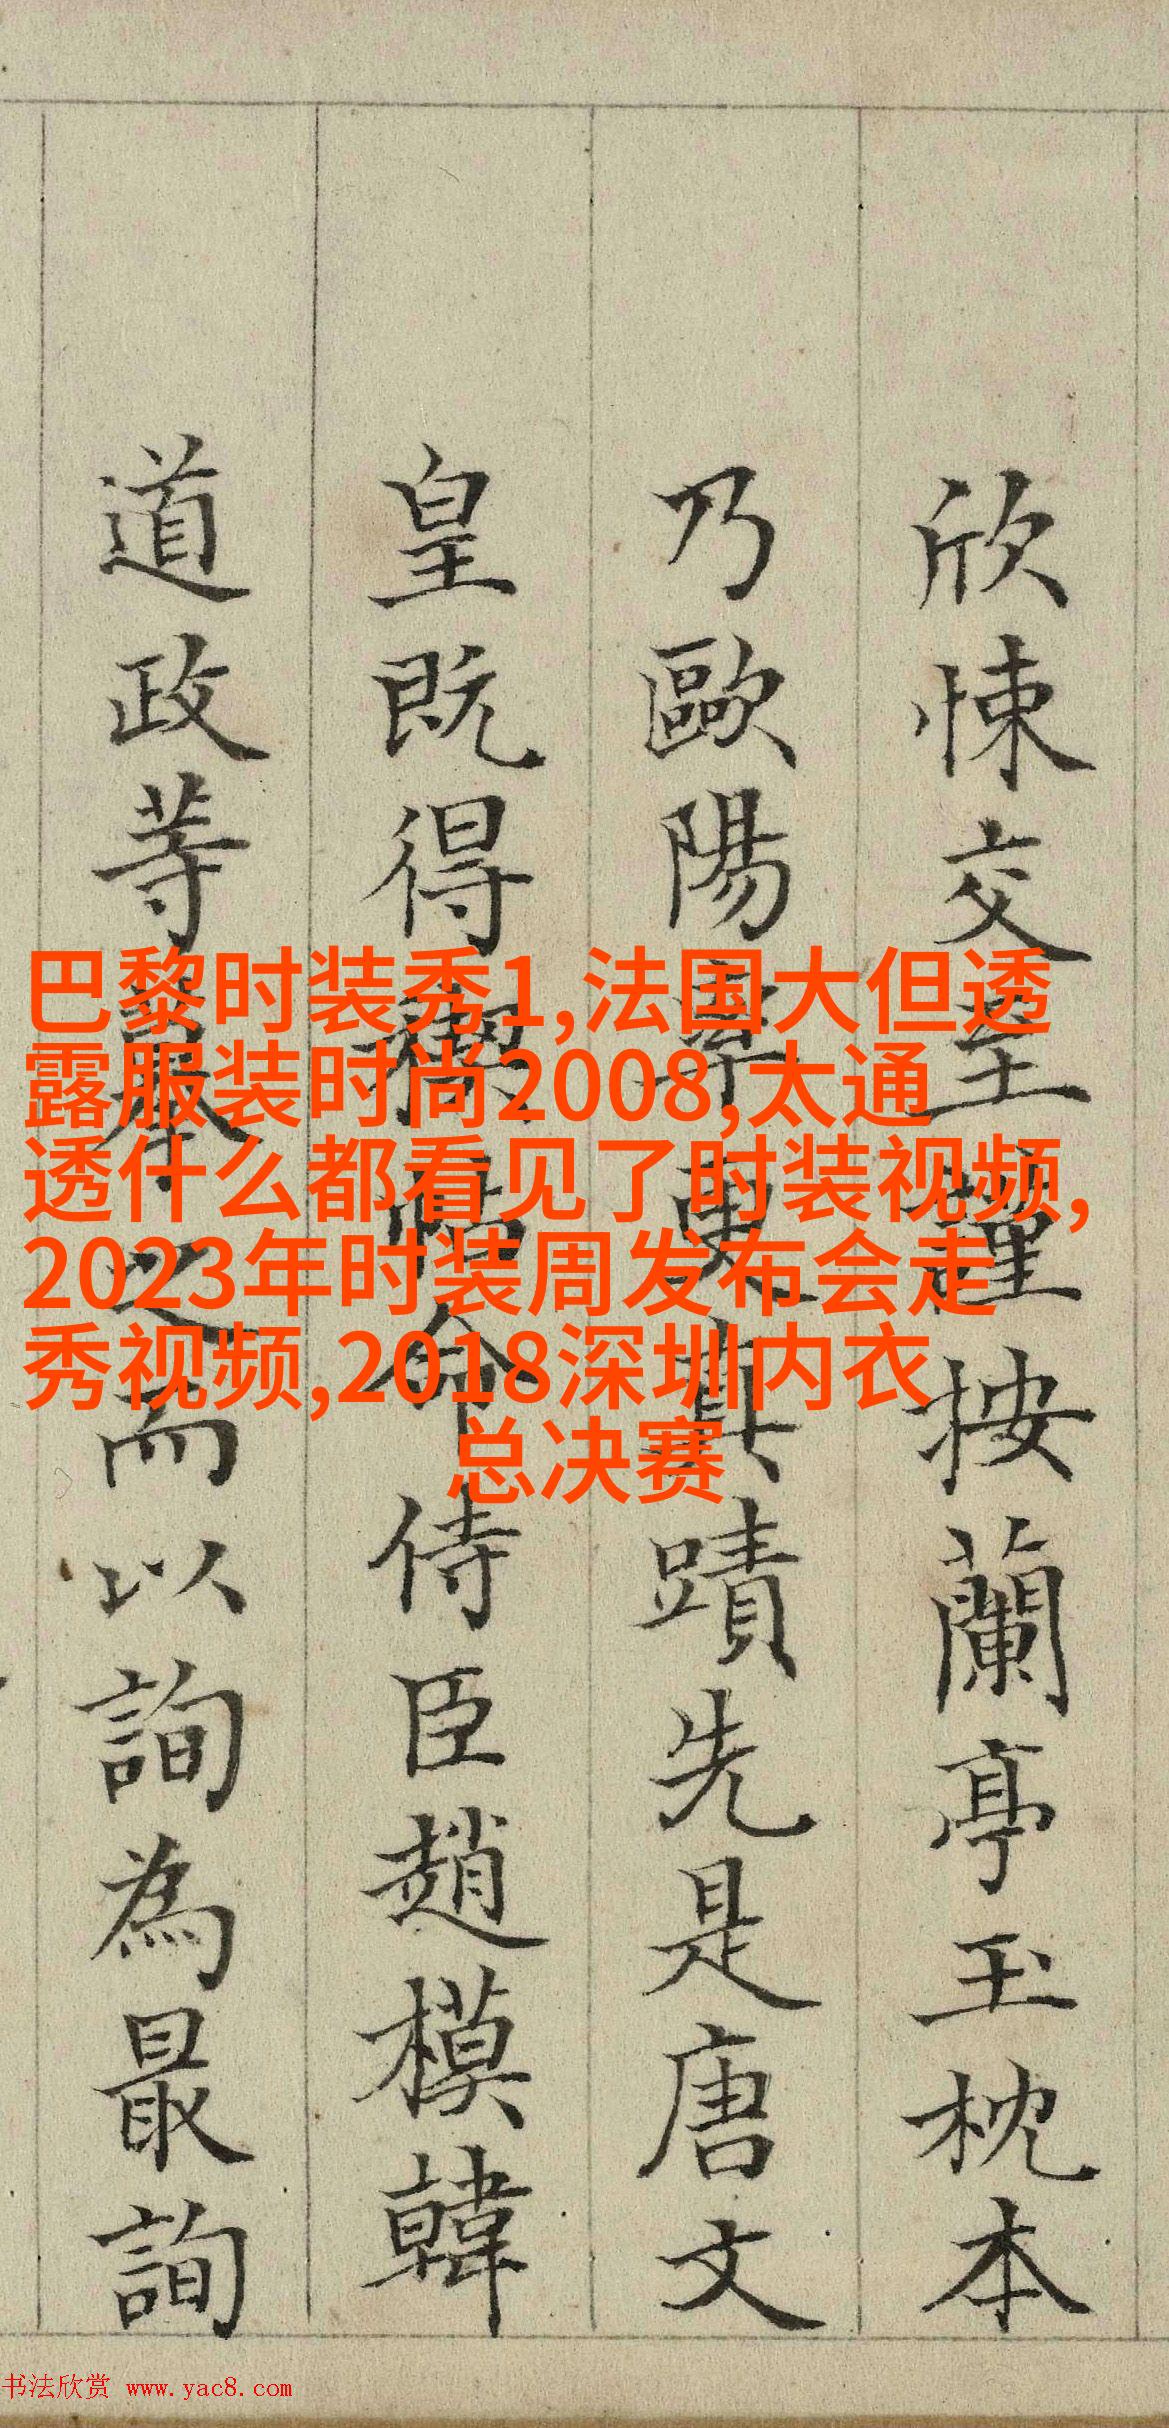 欣悚交至謹按蘭亭玉枕本
乃歐陽率更真蹟先是唐文
皇既得禊帖命侍臣趙模韓
道政等摹之而以詢為最詢
巴黎时装秀1,法国大但透
露服装时尚2008,太通
透什么都看见了时装视频,
2023年时装周发布会走
秀视频,2018深圳内衣
总决赛
书法欣赏 www.yac8.com